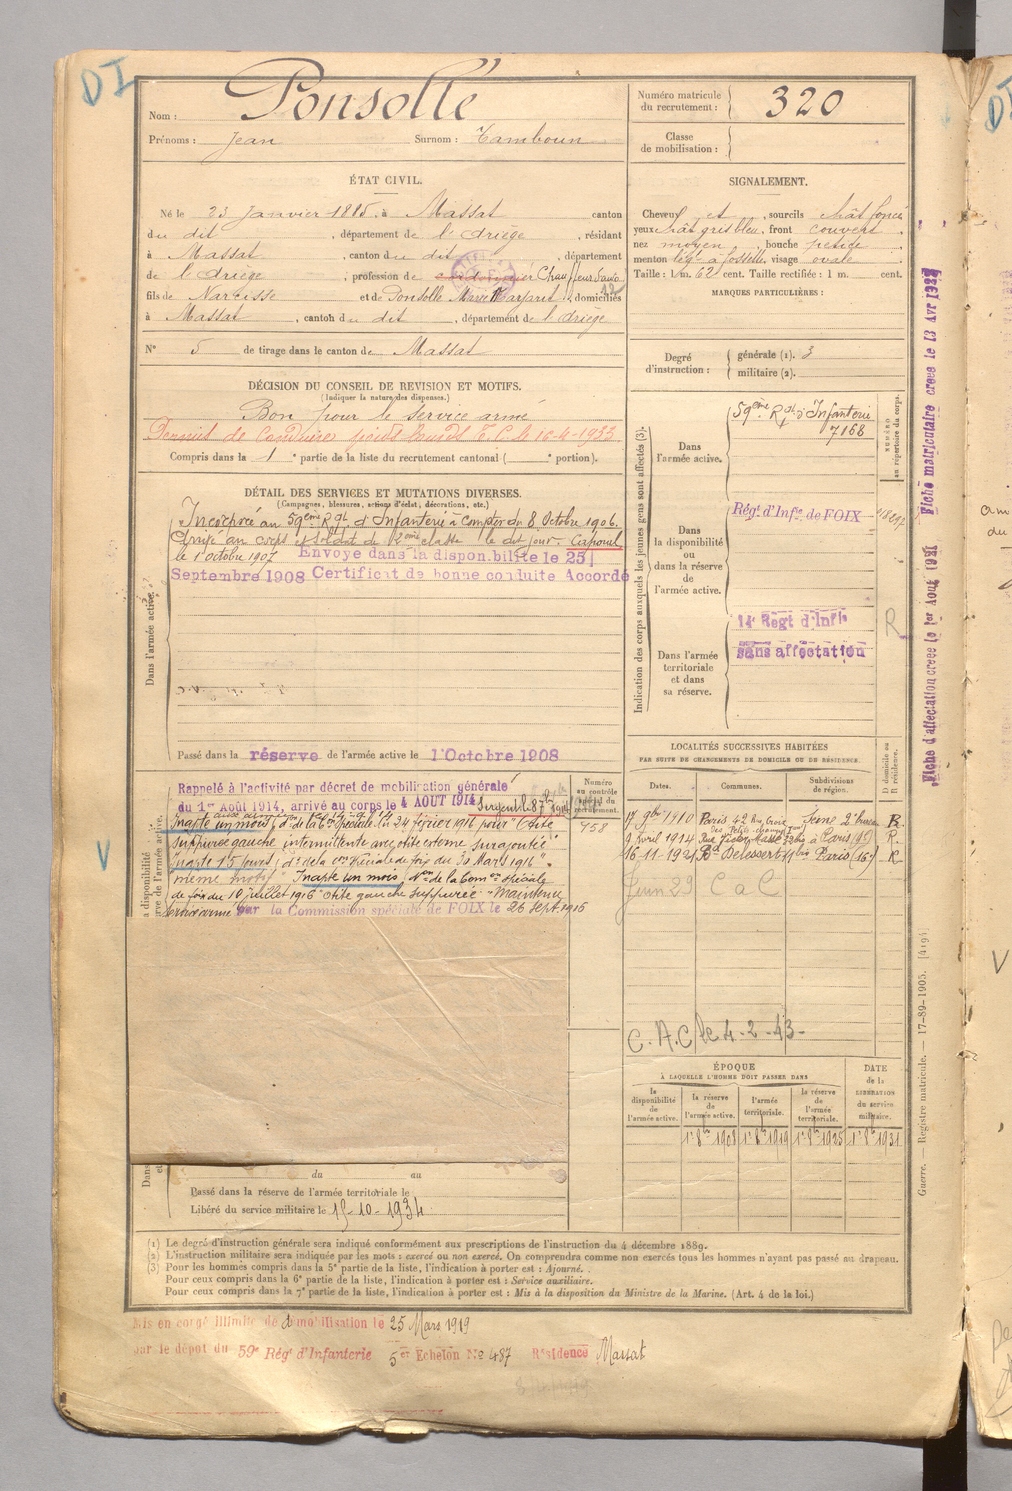 DI
Nom : Ponsolle
Prénoms : Jean Surnom : Tamboun
Numéro matricule du recrutement : 320
Classe de mobilisation :
ÉTAT CIVIL.
Né le 23 Janvier 1885. à Massat canton
du dit, département de l'Ariège, résidant
à Massat, canton du dit, département
de l'Ariège, profession de cordonnier Chauffeur d'auto
12
fils de Narcisse et de Ponsolle Marie Margant, domiciliés
à Massat, canton du dit, département de l'Ariège
N° 5 de tirage dans le canton de Massat
SIGNALEMENT.
Cheveux et, sourcils chât foncé
yeux chât gris bleu, front couvert
nez moyen, bouche petite
menton à fossette, visage ovale
Taille : 1 m. 62 cent. Taille rectifiée : 1 m. cent.
MARQUES PARTICULIÈRES :
Degré d'instruction : générale (1). 3
militaire (2).
DÉCISION DU CONSEIL DE REVISION ET MOTIFS.
(Indiquer la nature des dispenses.)
Bon pour le service armé
Permis de Conduire poids lourds T.C. le 16-4-1933
Compris dans la 1e partie de la liste du recrutement cantonal ( e portion).
DÉTAIL DES SERVICES ET MUTATIONS DIVERSES.
(Campagnes, blessures, actions d'éclat, décorations, etc.)
Dans l'armée active.
Incorporé au 59ème Rgt d'Infanterie à compter du 8 Octobre 1906.
Arrivé au corps et soldat de 2ème classe le dit jour. Caporal
le 1er octobre 1907 Envoyé dans la disponibilité le 25
Septembre 1908 Certificat de bonne conduite Accordé
Passé dans la réserve de l'armée active le 1 Octobre 1908
Indication des corps auxquels les jeunes gens sont affectés (3).
NUMÉRO au répertoire du corps.
Dans l'armée active.
59ème Rgt d'Infanterie
7168
Dans la disponibilité ou dans la réserve de l'armée active.
Régt d'Infie de FOIX
Dans l'armée territoriale et dans sa réserve.
14e Regt d'Infie
sans affectation
R
LOCALITÉS SUCCESSIVES HABITÉES
PAR SUITE DE CHANGEMENTS DE DOMICILE OU DE RÉSIDENCE.
Dates. Communes. Subdivisions de région. D domicile ou R résidence.
17 9bre 1910 Paris 42 Rue Croix des Petits champs Seine 2e bureau R.
9 Avril 1914 Rue Victor Massé à Paris (9) R.
16-11-1921 Bd Delessert Paris (16e) R
Juin 29 C a C
C.A.C le 4-2-43-
Rappelé à l'activité par décret de mobilisation générale
du 1er Août 1914, arrivé au corps le 4 AOUT 1914 Sergent le
Inapte un mois, dn de la Con Spéciale du 24 février 1916 pour "Otite
suppurée gauche intermittente avec otite externe surajoutée"
Inapte 15 jours, dn de la con Spéciale de foix du 30 Mars 1916
même motif. Inapte un mois, don de la Comon spéciale
de foix du 10 juillet 1916 "otite gauche suppurée". Maintenu
service armé par la Commission spéciale de FOIX le 26 Sept. 1916
Numéro au contrôle spécial du recrutement.
958
V
du au
Passé dans la réserve de l'armée territoriale le
Libéré du service militaire le 15-10-1934
ÉPOQUE
À LAQUELLE L'HOMME DOIT PASSER DANS
la disponibilité de l'armée active.
la réserve de l'armée active.
l'armée territoriale.
la réserve de l'armée territoriale.
DATE de la LIBÉRATION du service militaire.
1er 8bre 1908 1er 8bre 1919 1er 8bre 1925 1er 8bre 1931
(1) Le degré d'instruction générale sera indiqué conformément aux prescriptions de l'instruction du 4 décembre 1889.
(2) L'instruction militaire sera indiquée par les mots : exercé ou non exercé. On comprendra comme non exercés tous les hommes n'ayant pas passé au drapeau.
(3) Pour les hommes compris dans la 5e partie de la liste, l'indication à porter est : Ajourné.
Pour ceux compris dans la 6e partie de la liste, l'indication à porter est : Service auxiliaire.
Pour ceux compris dans la 7e partie de la liste, l'indication à porter est : Mis à la disposition du Ministre de la Marine. (Art. 4 de la loi.)
Mis en congé illimité de démobilisation le 25 Mars 1919
par le dépot du 59e Régt d'Infanterie 5er Echelon No 487 Résidence Massat
Guerre. — Registre matricule. — 17-89-1905. [4194]
Fiche d'affectation créée le 1er Août 1921
Fiche matriculaire créée le 13 Avr 1927